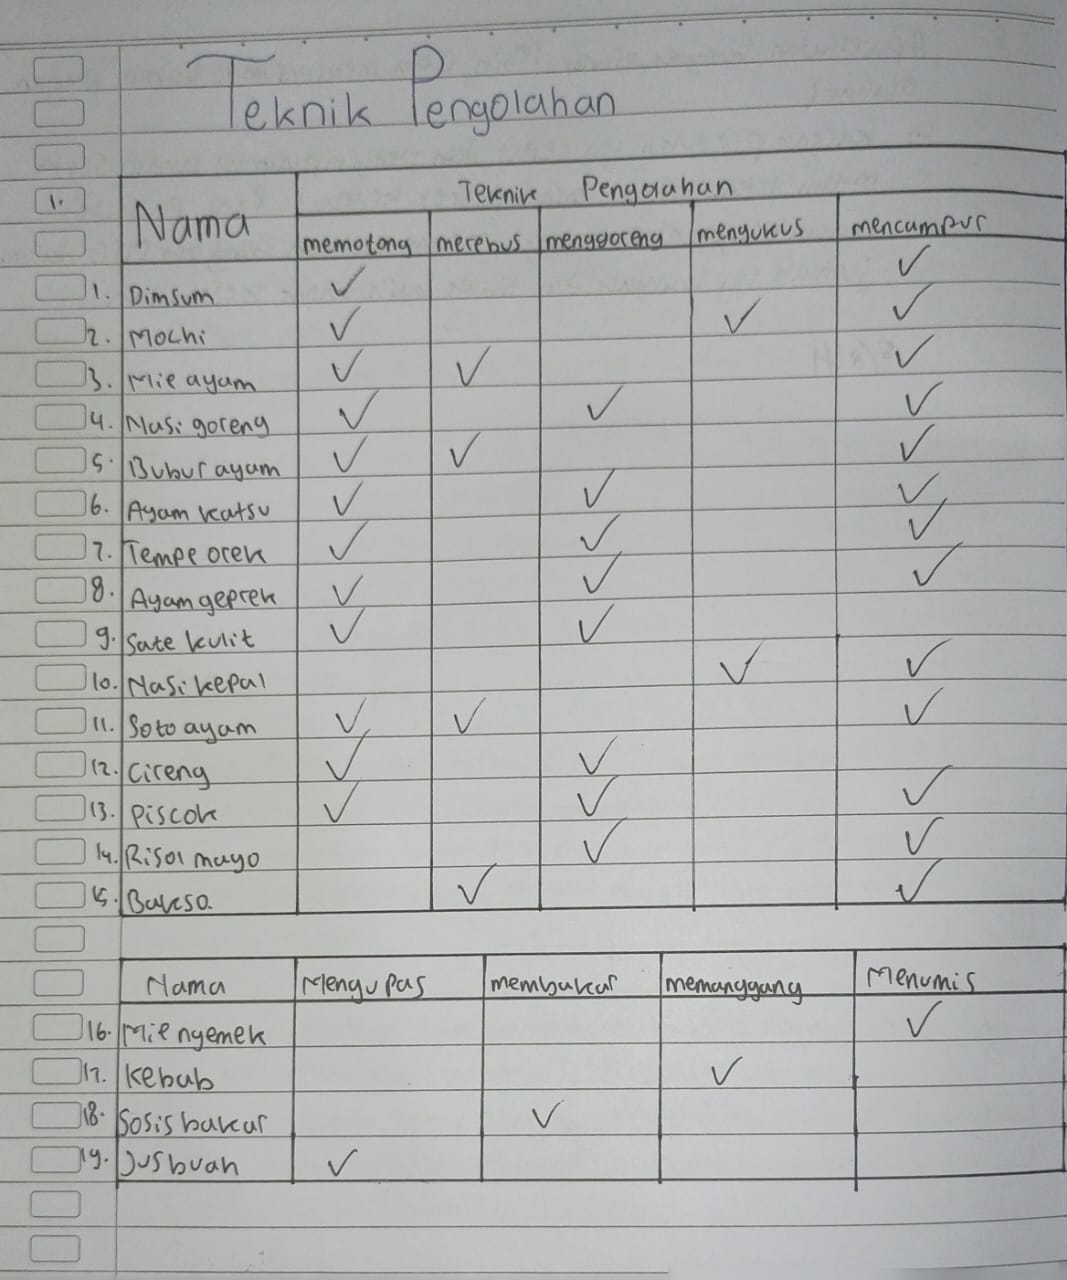 Teknik Pengolahan
1. Nama Teknik Pengolahan
memotong merebus menggoreng mengukus mencampur
1. Dimsum ✓ ✓
2. Mochi ✓ ✓ ✓
3. Mie ayam ✓ ✓ ✓
4. Nasi goreng ✓ ✓ ✓
5. Bubur ayam ✓ ✓ ✓
6. Ayam katsu ✓ ✓ ✓
7. Tempe orek ✓ ✓ ✓
8. Ayam geprek ✓ ✓ ✓
9. Sate kulit ✓ ✓
10. Nasi kepal ✓ ✓
11. Soto ayam ✓ ✓ ✓
12. Cireng ✓ ✓
13. Piscok ✓ ✓ ✓
14. Risol mayo ✓ ✓
15. Bakso ✓ ✓
Nama Mengupas membakar memanggang Menumis
16. Mie nyemek ✓
17. Kebab ✓
18. Sosis bakar ✓
19. Jus buah ✓